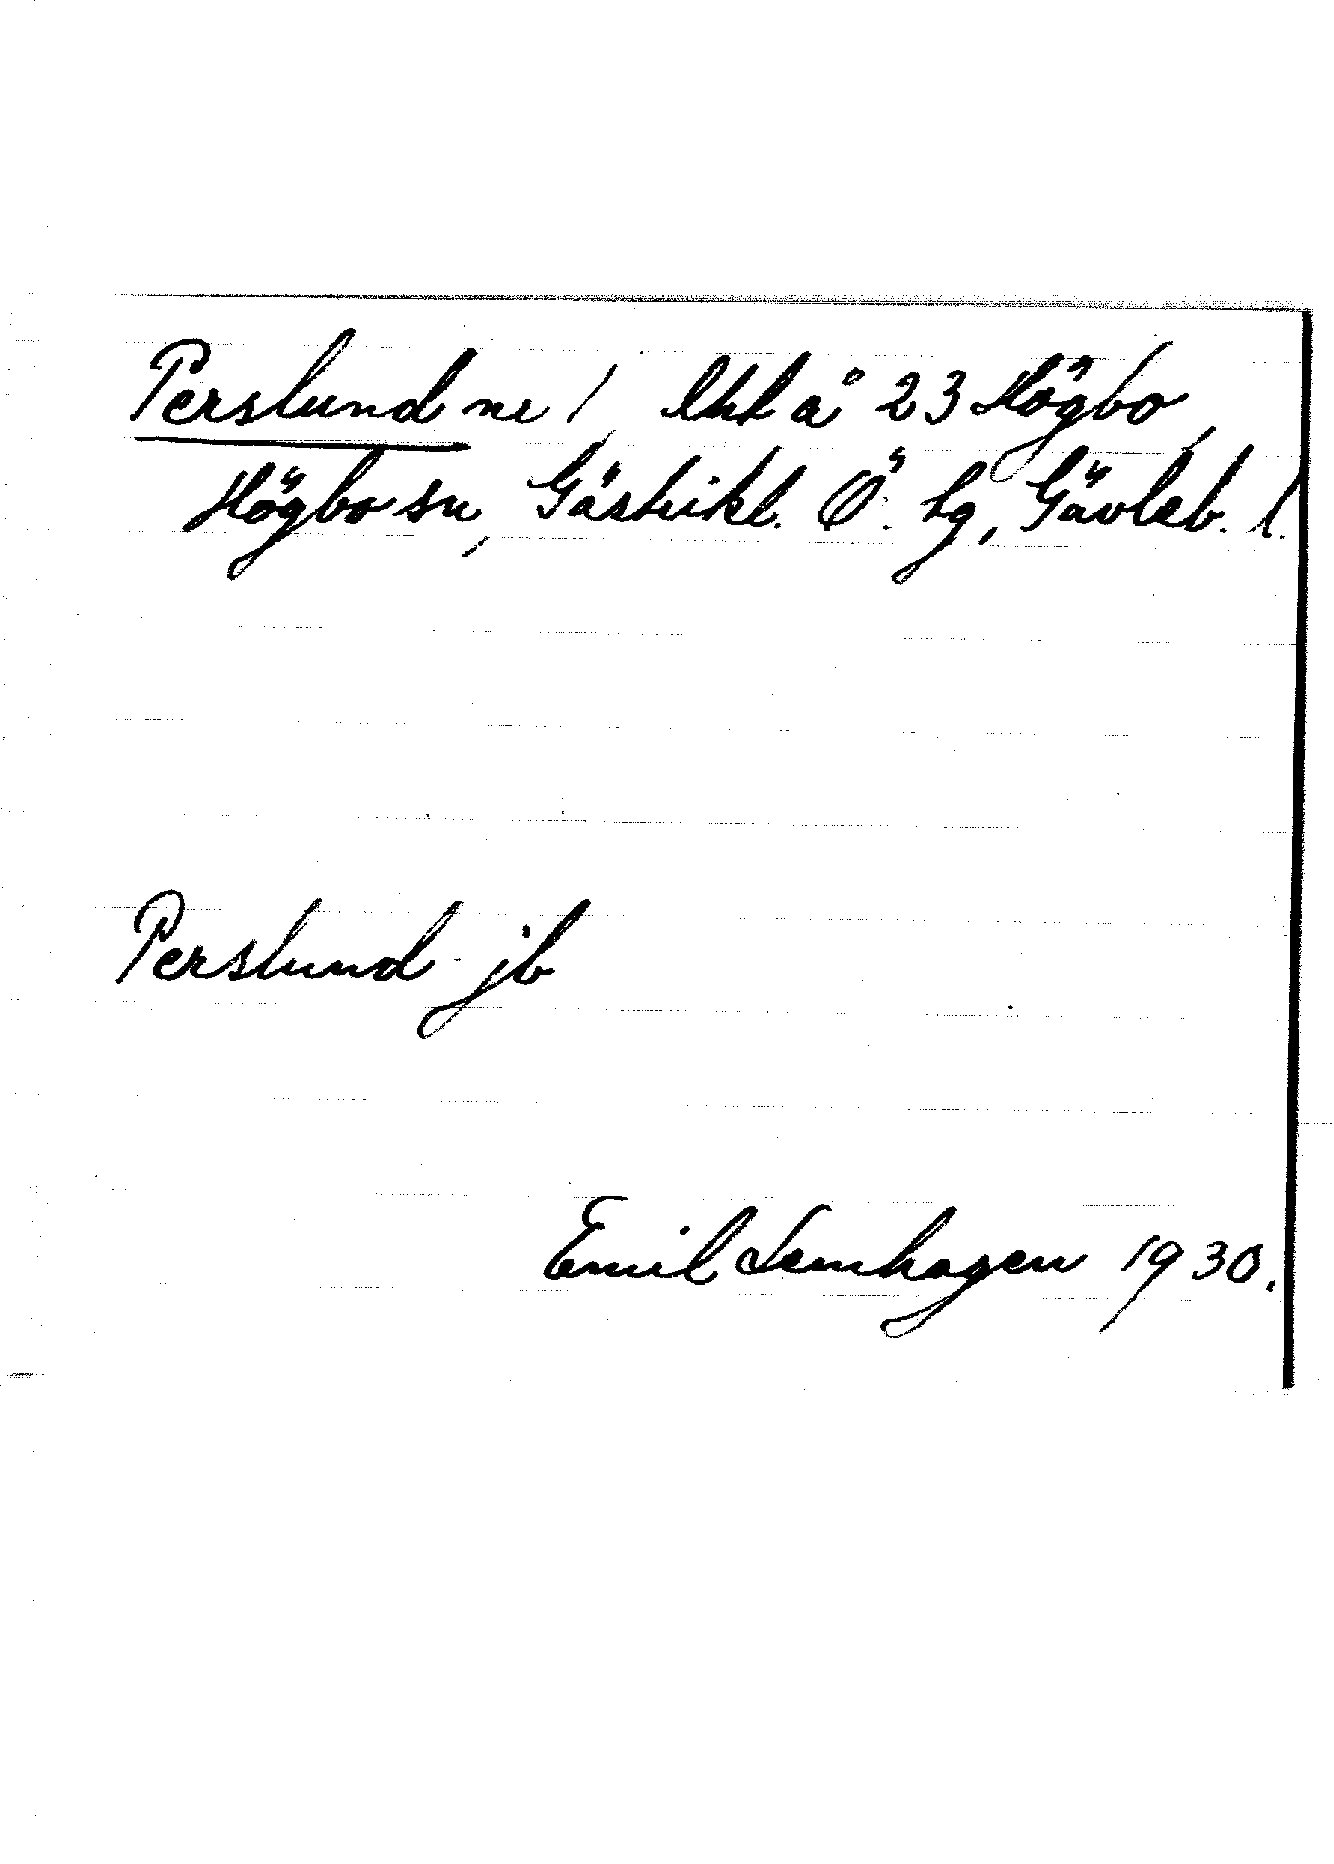 Perslund nr 1 lht å 23 Högbo,
Högbo sn, Gästrikl. Ö. tg, Gävleb. l.
Perslund jb
Emil Lennhagen 1930.